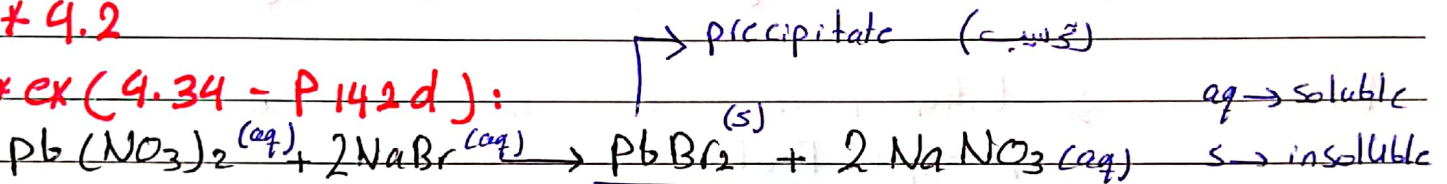 * 4.2
→ precipitate (ترسيب)
* ex (4.34 - P 142d):
aq → soluble
Pb(NO3)2 (aq) + 2NaBr (aq) → PbBr2 (s) + 2 NaNO3 (aq)
s → insoluble